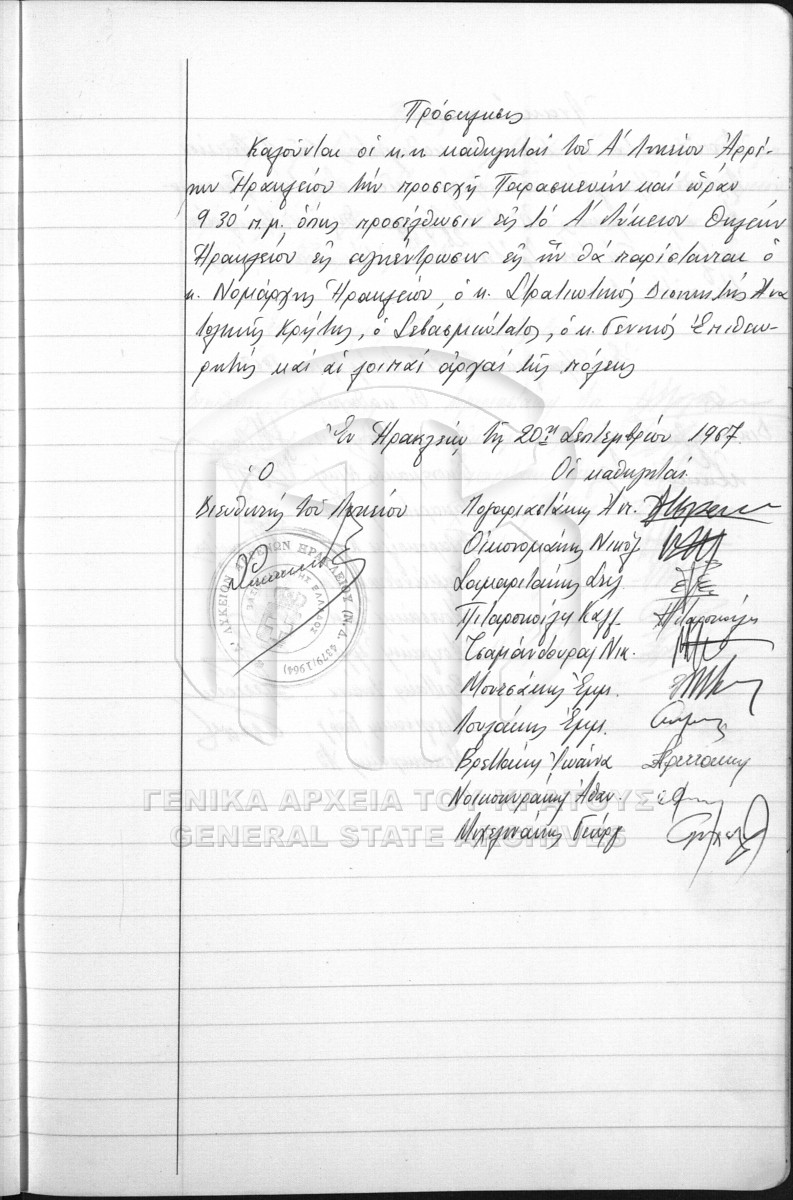 Πρόσκλησις
Καλοῦνται οἱ κ.κ καθηγηταί τοῦ Α΄ Λυκείου Ἀρρέ-
νων Ἡρακλείου τήν προσεχῆ Παρασκευήν καί ὥραν
9 30΄ π.μ, ὅπως προσέλθωσιν εἰς τό Α΄ Λύκειον Θηλέων
Ἡρακλείου εἰς συγκέντρωσιν εἰς ἥν θά παρίστανται ὁ
κ. Νομάρχης Ἡρακλείου, ὁ κ. Στρατιωτικός Διοικητής Ἀνα
τολικῆς Κρήτης, ὁ Σεβασμιώτατος, ὁ κ. Γενικός Ἐπιθεω-
ρητής καί αἱ λοιπαί ἀρχαί τῆς πόλεως
Ἐν Ἡρακλείῳ τῇ 20ῃ Σεπτεμβρίου 1967.
Ὁ
Οἱ καθηγηταί
Διευθυντής τοῦ Λυκείου
Ἀντ.
Οἰκονομάκης Νικόλ
Σαμαριτάκης Στυλ
Πιταροκοίλη Καλλ. Πιταροκοίλη
Τσαμάνδουρας Νικ.
Μουτσάκης Ἐμμ.
Λουλάκης Ἐμμ.
Βρεττάκη Ἰωάννα
Νοικοκυράκη Ἀθαν.
Μιχελινάκης Γεώργ
Α΄ ΛΥΚΕΙΟΝ ΑΡΡΕΝΩΝ ΗΡΑΚΛΕΙΟΥ (Ν.Δ. 4379)1964)
ΓΕΝΙΚΑ ΑΡΧΕΙΑ ΤΟΥ ΚΡΑΤΟΥΣ
GENERAL STATE ARCHIVES